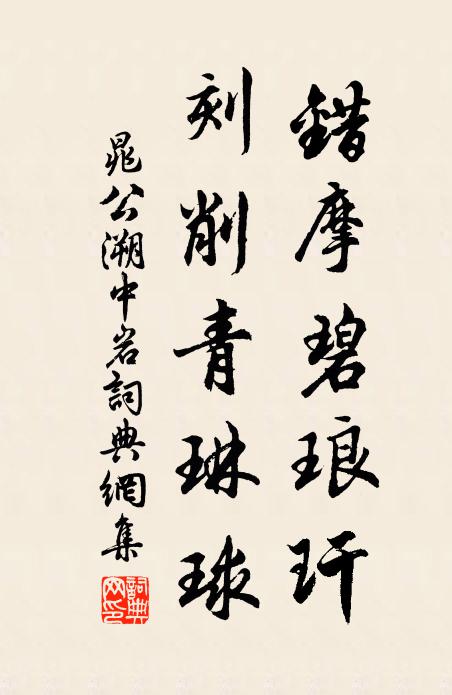 錯摩碧琅玕
刻削青琳球
晁公溯中岩詞典網集
詞典網印